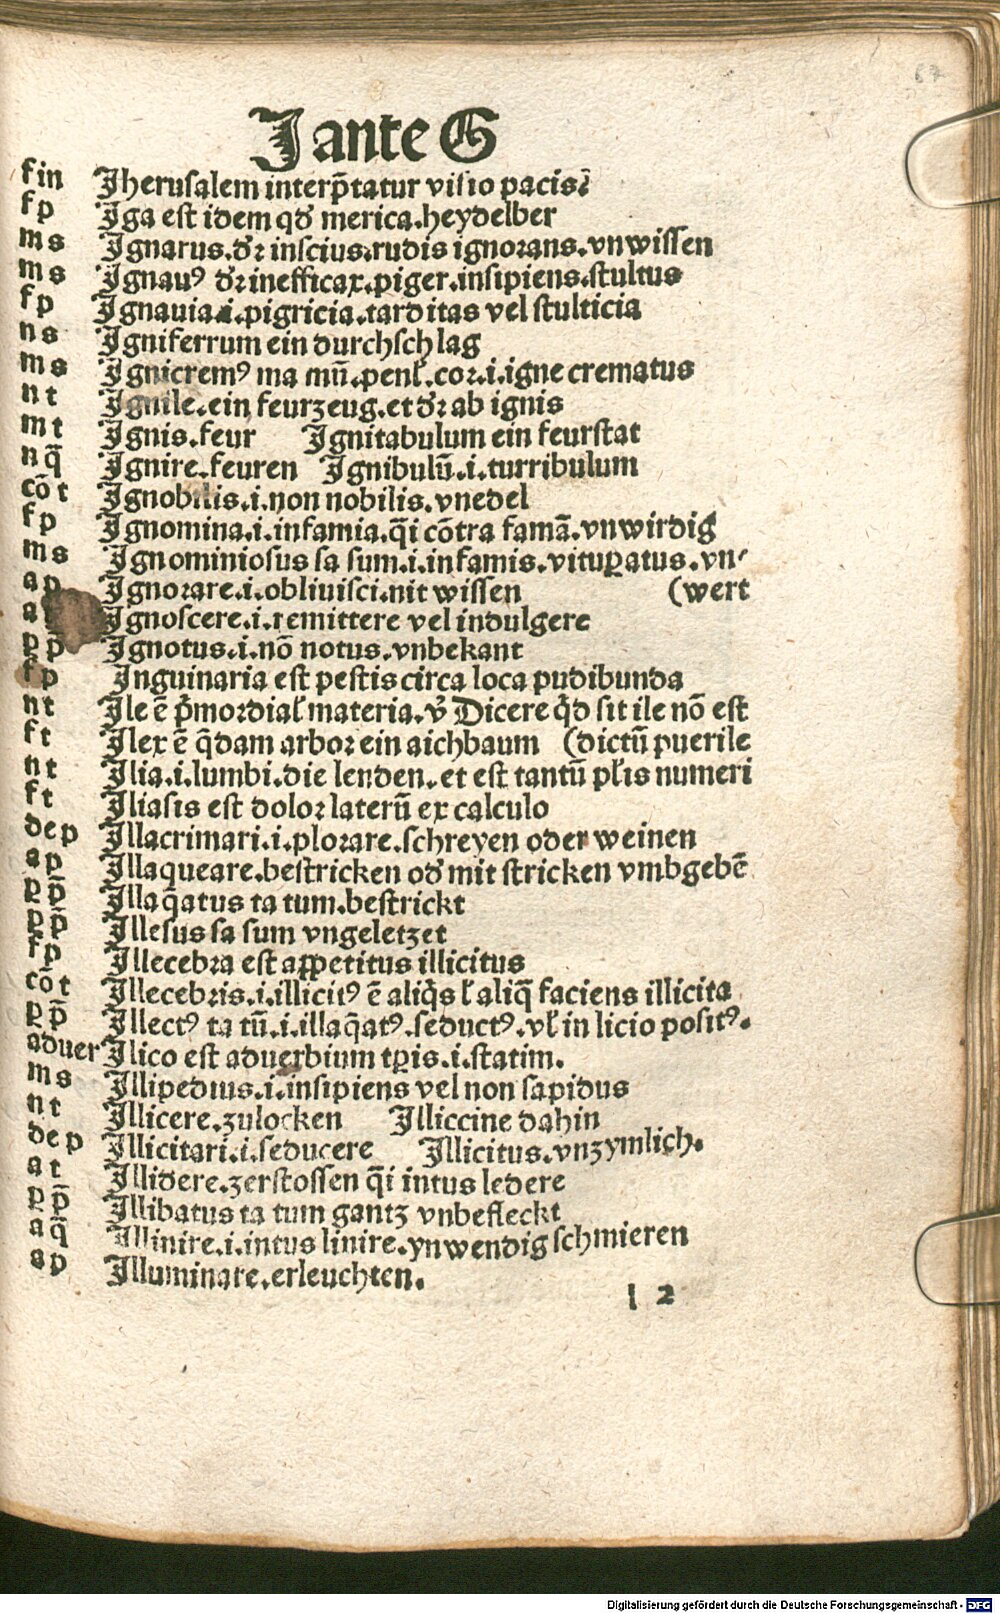 67
J ante G
fin Jherusalem interp̄tatur visio pacis
fp Jga est idem qđ merica.heydelber
ms Jgnarus.dꝛ inscius.rudis ignorans.vnwissen
ms Jgnauꝰ dꝛ inefficax.piger.insipiens.stultus
fp Jgnauia.i.pigricia.tarditas vel stulticia
ns Jgniferrum ein durchschlag
ms Jgnicremꝰ ma mū.penł.coꝛ.i.igne crematus
nt Jgnile.ein feurzeug.et dꝛ ab ignis
mt Jgnis.feur Jgnitabulum ein feurstat
nq̄ Jgnire.feuren Jgnibulū.i.turribulum
cōt Jgnobilis.i.non nobilis.vnedel
fp Jgnomina.i.infamia.q̄i cōtra famā.vnwirdig
ms Jgnominiosus sa sum.i.infamis.vituꝑatus.vn⸗
ap Jgnoꝛare.i.obliuisci.nit wissen (wert
a Jgnoscere.i.remittere vel indulgere
pp̄ Jgnotus.i.nō notus.vnbekant
fp Jnguinaria est pestis circa loca pudibunda
nt Jle ē p̄moꝛdiał materia.v̄ Dicere q̄d sit ile nō est
ft Jlex ē q̄dam arboꝛ ein aichbaum (dictū puerile
nt Jlia.i.lumbi.die lenden.et est tantū płis numeri
ft Jliasis est doloꝛ laterū ex calculo
dep Jllacrimari.i.ploꝛare.schreyen oder weinen
ap Jllaqueare.bestricken ođ mit stricken vmbgebē
pp̄ Jllaq̄atus ta tum.bestrickt
pp̄ Jllesus sa sum vngeletzet
fp Jllecebꝛa est apꝑetitus illicitus
cōt Jllecebꝛis.i.illicitꝰ ē aliq̄s ł aliq̄ faciens illicita
pp̄ Jllectꝰ ta tū.i.illaq̄atꝰ.seductꝰ.vł in licio positꝰ.
aduer Jlico est aduerbium tꝑis.i.statim.
ms Jllipedius.i.insipiens vel non sapidus
nt Jllicere.zulocken Jlliccine dahin
dep Jllicitari.i.seducere Jllicitus.vnzymlich.
at Jllidere.zerstossen q̄i intus ledere
pp̄ Jllibatus ta tum gantz vnbefleckt
aq̄ Jllinire.i.intus linire.ynwendig schmieren
ap Jlluminare.erleuchten.
l 2
Digitalisierung gefördert durch die Deutsche Forschungsgemeinschaft - DFG